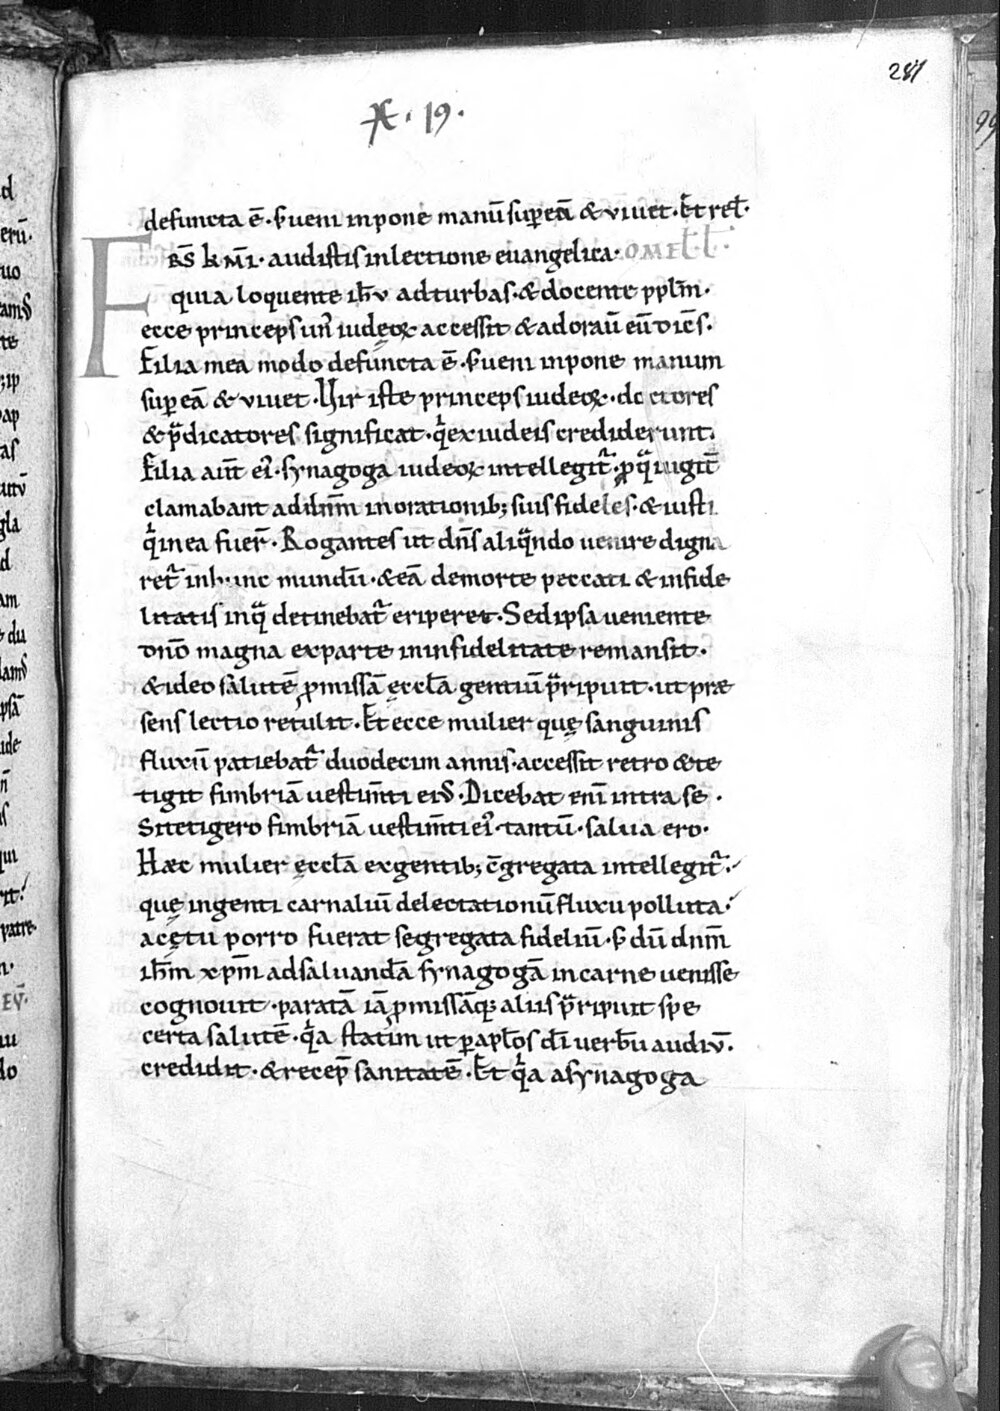 281
A. 19.
defuncta ē. s; ueni inpone manū sup eā & uiuet. Et rel.
FRS̄ k̄mi. audistis in lectione euangelica. OMEL̄.
quia loquente ih̄u ad turbas. & docente ppl̄m.
ecce princeps un᾿ iudeoꝝ accessit & adorauı̄ eū dicēs.
Filia mea modo defuncta ē. s; ueni inpone manum
sup eā & uiuet. Vir iste princeps iudeoꝝ. doctores
& p̄dicatores significat. q̓ ex iudeis crediderunt.
Filia aūt ei᾿. synagoga iudeoꝝ intellegit᷑. ꝓ qua iugit̄
clamabant ad dn̄m in orationib; suis fideles. & iusti
q̓ in ea fuer̄. Rogantes ut dn̄s aliqͣndo uenire digna
ret᷑ in hunc mundū. & eā de morte peccati & infide
litatis in qͣ detinebat᷑ eriperet. Sed ipsa ueniente
dn̄o magna ex parte in infidelitate remansit.
& ideo salutē ꝓmissā ęccl̄a gentiū p̄ripuit. ut præ
sens lectio retulit. Et ecce mulier quę sanguinis
fluxū patiebat᷑ duodecim annis. accessit retro & te
tigit fimbriā uestim̄ti ei᾿. Dicebat enī intra se.
Si tetigero fimbriā uestim̄ti ei᾿. tantū. salua ero.
Hæc mulier ęccl̄a ex gentib; c̄gregata intellegit᷑.
quę ingenti carnaliū delectationū fluxu polluta.
a cętu porro fuerat segregata fideliū. s; dū dn̄m
ih̄m xp̄m ad saluandā synagogā in carne uenisse
cognouit. paratā iā ꝓmissāq; aliis p̄ripuit spe
certa salutē. q̓a statim ut p apl̄os dī uerbū audiū.
credidit. & recep̄ sanitatē. Et q̓a a synagoga